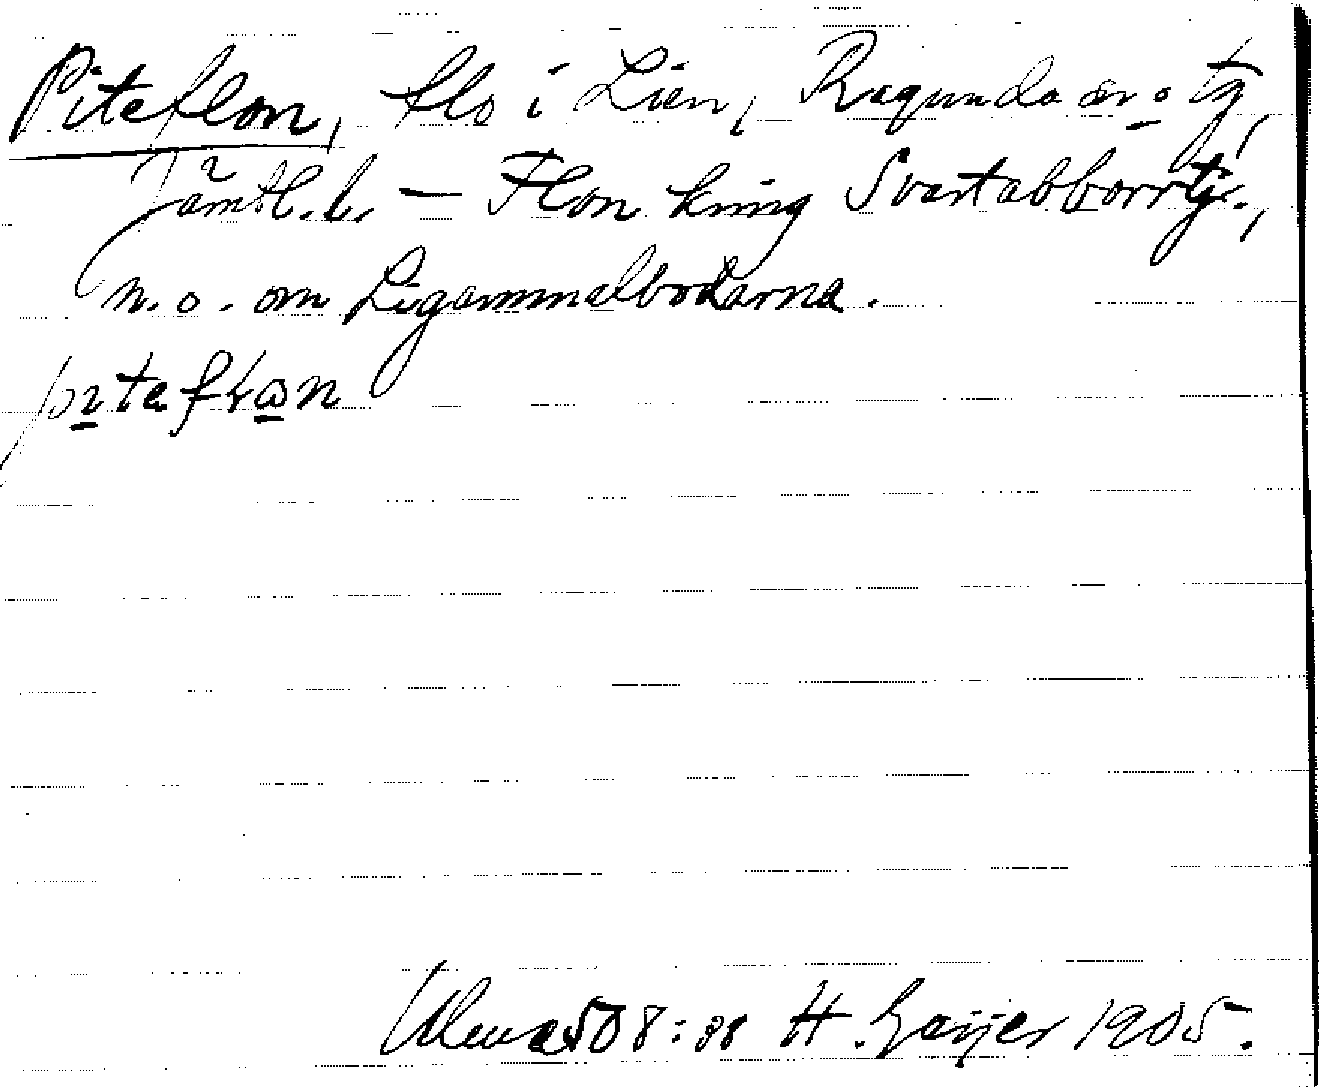 Piteflon, flo i Lien, Ragunda sn o tg,
Jämtl. l. – Flon kring Svartabborrtj.,
n.o. om Ligammelbodarna.
pıteflɷn
Ulma 508:38 H. Geijer 1905.